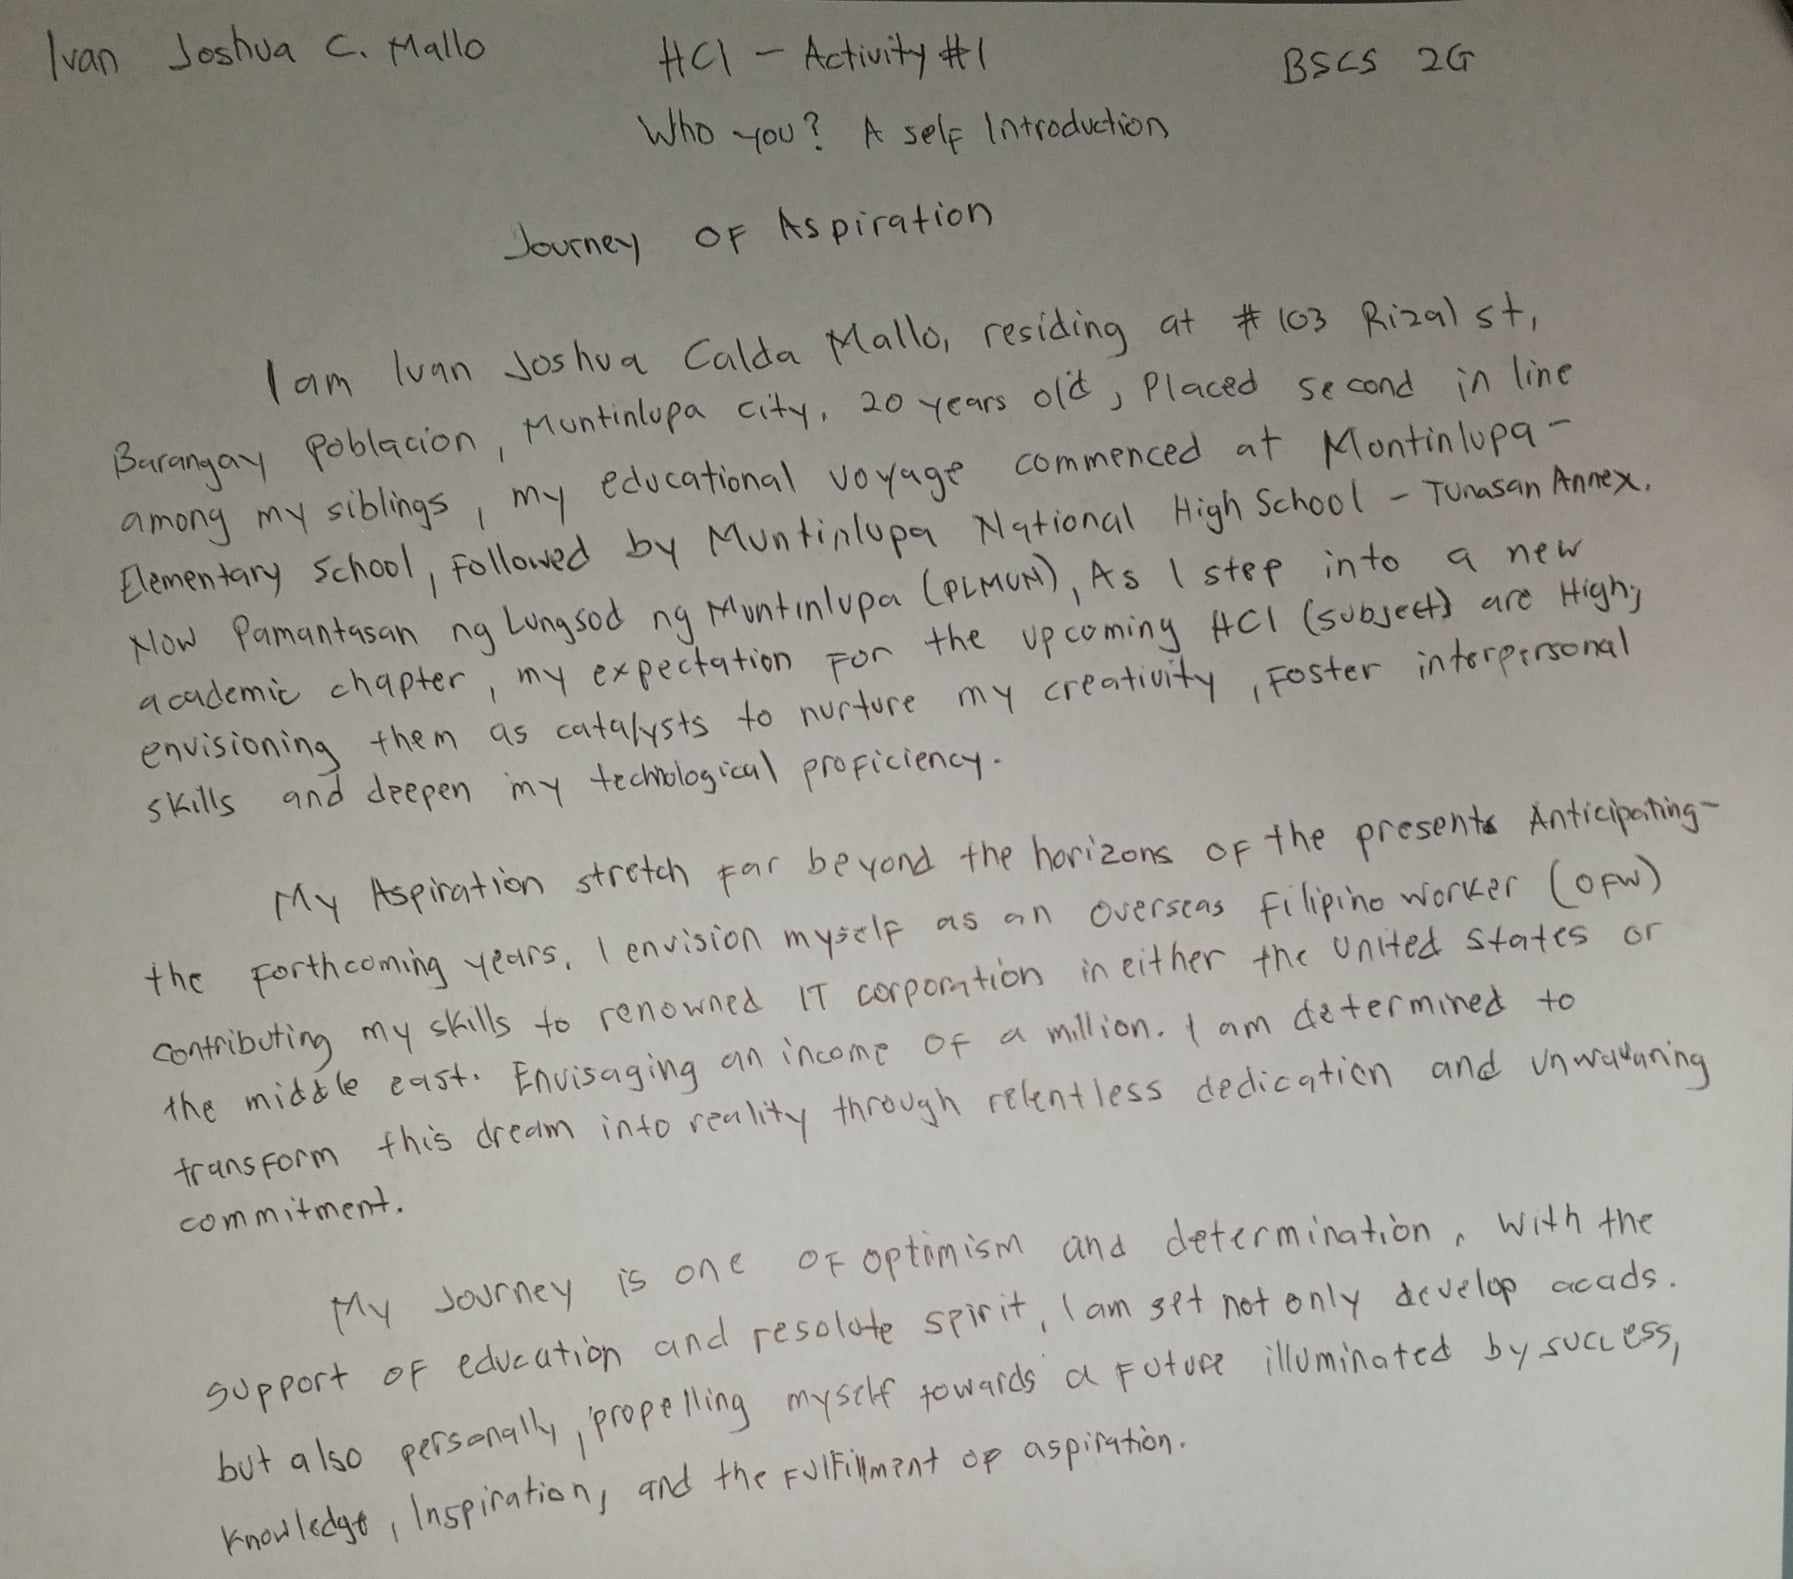 Ivan Joshua C. Mallo HCI - Activity #1 BSCS 2G
Who you? A self Introduction
Journey OF Aspiration
I am Ivan Joshua Calda Mallo, residing at #103 Rizal st,
Barangay Poblacion, Muntinlupa city, 20 years old, Placed second in line
among my siblings, my educational voyage commenced at Montinlupa-
Elementary School, Followed by Muntinlupa National High School - Tunasan Annex.
Now Pamantasan ng Lungsod ng Muntinlupa (PLMUN), As I step into a new
academic chapter, my expectation For the upcoming HCI (subject) are High;
envisioning them as catalysts to nurture my creativity, Foster interpersonal
skills and deepen my technological proficiency.
My Aspiration stretch Far beyond the horizons OF the present. Anticipating-
the Forthcoming years, I envision myself as an Overseas Filipino Worker (OFW)
contributing my skills to renowned IT corporation in either the United States or
the middle east. Envisaging an income OF a million. I am determined to
transForm this dream into reality through relentless dedication and unwavaring
commitment.
My Journey is one OF optimism and determination, with the
support OF education and resolute spirit, I am set not only develop acads.
but also personally, propelling myself towards a Future illuminated by success,
Knowledge, Inspiration, and the Fulfillment OF aspiration.